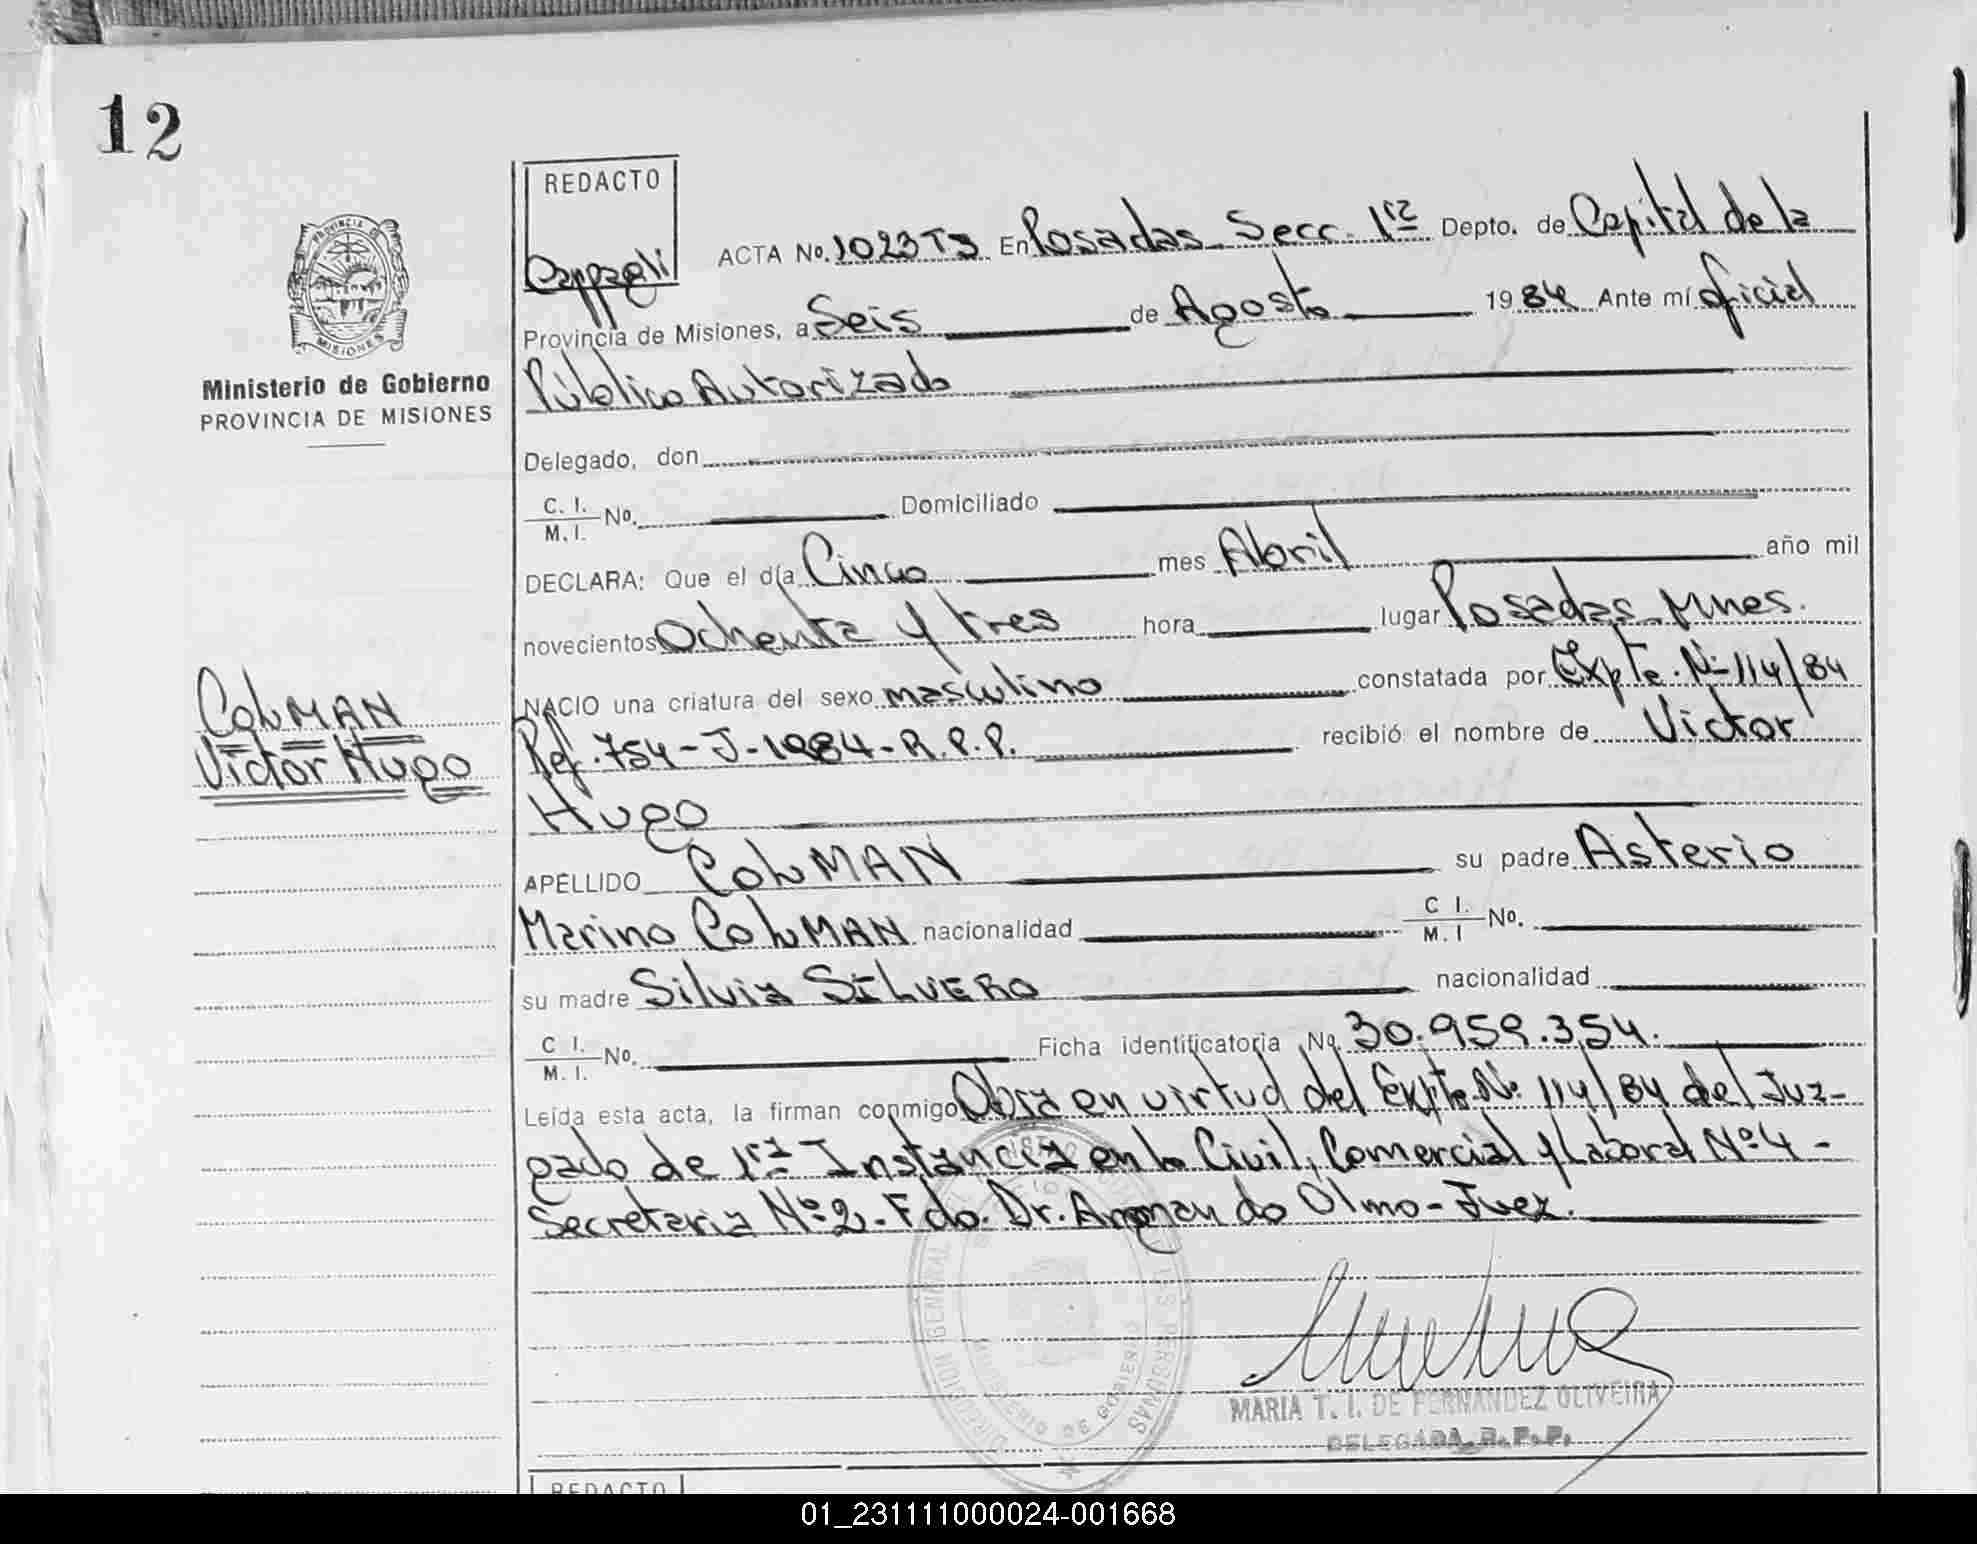 12
REDACTO
Cappagli
PROVINCIA DE
MISIONES
Ministerio de Gobierno
PROVINCIA DE MISIONES
ACTA No. 1023 T3 En Posadas Secc. 1ra Depto. de Capital de la
Provincia de Misiones, a Seis de Agosto 1984 Ante mí Oficial
Público Autorizado
Delegado, don
C. I.
M. I. No. Domiciliado
DECLARA: Que el día Cinco mes Abril año mil
novecientos Ochenta y tres hora lugar Posadas Mnes.
COLMAN
Victor Hugo
NACIO una criatura del sexo masculino constatada por Expte. Nº 114/84
Ref. 754-J-1984-R.P.P. recibió el nombre de Victor
Hugo
APELLIDO COLMAN su padre Asterio
Marino COLMAN nacionalidad C I. M. I No.
su madre Silvia SILVERO nacionalidad
C I.
M. I. No. Ficha identificatoria No. 30.959.354.
Leída esta acta, la firman conmigo Obra en virtud del Expte. Nº 114/84 del Juz-
gado de 1ra Instancia en lo Civil, Comercial y Laboral Nº 4 -
Secretaria Nº 2. Fdo. Dr. Armando Olmo - Juez.
DIRECCION GENERAL
DE LAS PERSONAS
MINISTERIO DE GOBIERNO
MARIA T. I. DE FERNANDEZ OLIVEIRA
DELEGADA R.P.P.
REDACTO
01_231111000024-001668